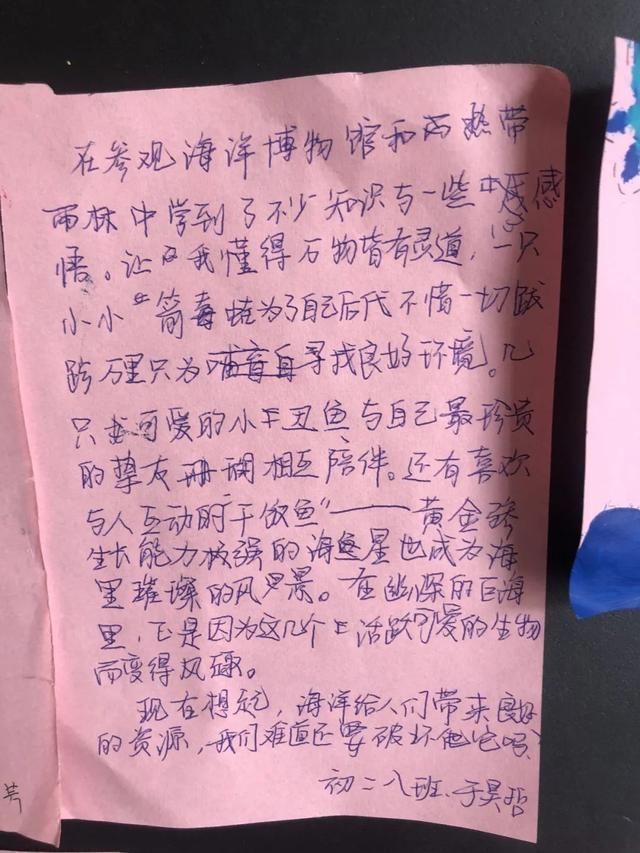 在参观海洋博物馆和西热带
雨林中学到了不少知识与一些感
悟。让我懂得万物皆有灵道,一只
小小箭毒蛙为了自己后代不惜一切跋
跨万里只为哺育自寻找良好环境。几
只可爱的小丑鱼与自己最珍贵
的挚友珊瑚相互陪伴。还有喜欢
与人互动的"鱼"——黄金鲹
生长能力极强的海星也成为海
里璀璨的风景。在幽深的巨海
里,正是因为这几个活跃可爱的生物
而变得风趣。
现在想起,海洋给人们带来良好
的资源,我们难道还要破坏它吗?
初二八班、于昊哲
号